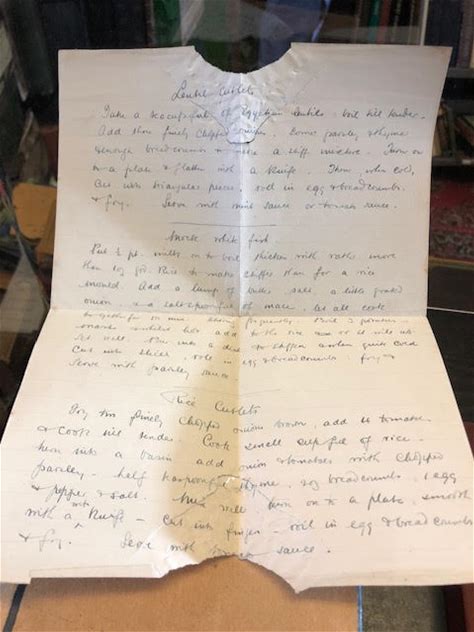 Lentil Cutlets
Take a teacupful of Egyptian lentils - boil till tender.
Add three finely chopped onions. Some parsley & thyme
& enough breadcrumbs to make a stiff mixture. Turn on
to a plate & flatten with a knife. Then, when cold,
cut into triangular pieces, roll in egg & breadcrumbs.
& fry. Serve with mint sauce or tomato sauce.
Mock white fish
Put ½ pt. milk on to boil thicken with rather more
than 1oz gd. Rice to make stiffer than for a rice
mould. Add a lump of butter salt, a little grated
onion & a saltspoonful of mace. Let all cook
together for 20 min. Boil 3 potatoes
mash whilst hot add to the rice
Set well into a dish to stiffen when quite cold
Cut into slices, roll in egg & breadcrumbs fry
Serve with parsley sauce.
Rice Cutlets
Fry two finely chopped onions brown, add tomatoes
& cook till tender. Cook small cupful of rice.
turn into a basin add onion & tomatoes with chopped
parsley - half teaspoonful thyme, breadcrumbs, 1 egg
& pepper & salt. Mix well turn on to a plate, smooth
with a knife - cut into fingers - roll in egg & breadcrumbs
& fry. Serve with tomato sauce.